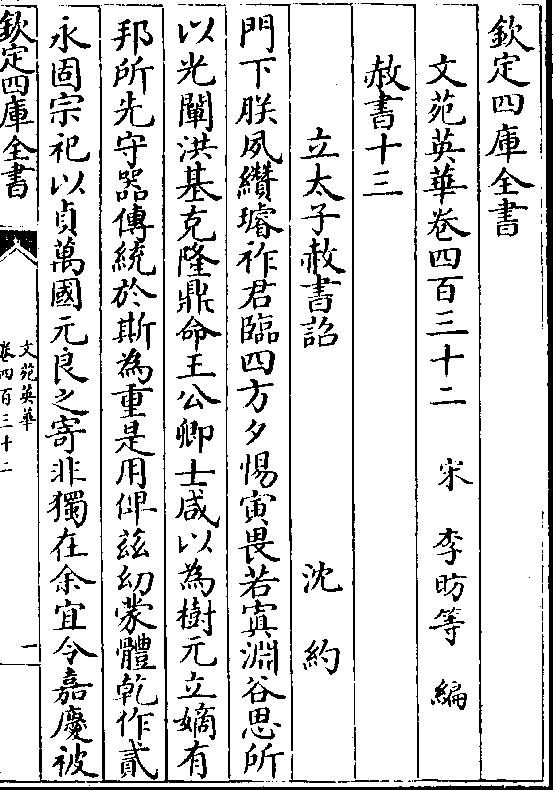 欽定四庫全書
文苑英華卷四百三十二 宋 李昉等 編
赦書十三
立太子赦書詔 沈約
門下朕夙纘璿祚君臨四方夕惕寅畏若寘淵谷思所
以光闡洪基克隆鼎命王公卿士咸以為樹元立嫡有
邦所先守器傳統於斯為重是用俾兹幼蒙體乾作貳
永固宗祀以貞萬國元良之寄非獨在余宜令嘉慶被
欽定四庫全書
文苑英華
卷四百三十二
一